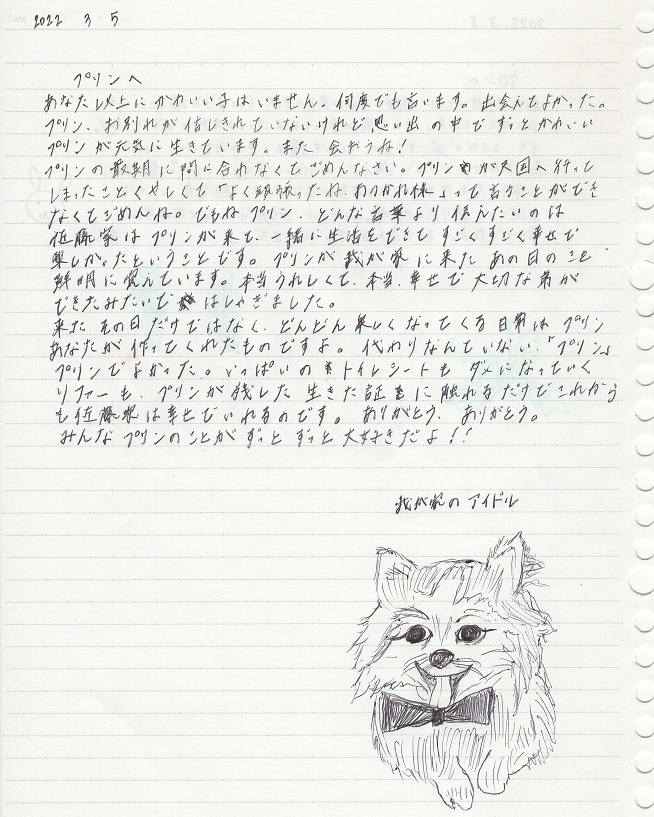 2022 3 5
プリンへ
あなた以上にかわいい子はいません。何度でも言います。出会えてよかった。
プリン、お別れが信じきれていないけれど思い出の中でずっとかわいい
プリンが元気に生きています。また会おうね！
プリンの最期に間に合わなくてごめんなさい。プリンが天国へ行って
しまったことくやしくて「よく頑張ったね、おつかれ様」って言うことができ
なくてごめんね。でもねプリン、どんな言葉より伝えたいのは
佐藤家はプリンが来て、一緒に生活をできてすごくすごく幸せで
楽しかったということです。プリンが我が家に来たあの日のこと
鮮明に覚えています。本当うれしくて、本当、幸せで大切な弟が
できたみたいではしゃぎました。
来たその日だけではなく、どんどん楽しくなってくる日常はプリン
あなたが作ってくれたものですよ。代わりなんていない、「プリン」
プリンでよかった。いっぱいのトイレシートもダメになっていく
ソファーも、プリンが残した生きた証に触れるだけでこれから
も佐藤家は幸せでいれるのです。ありがとう、ありがとう。
みんなプリンのことがずっとずっと大好きだよ！！
我が家のアイドル